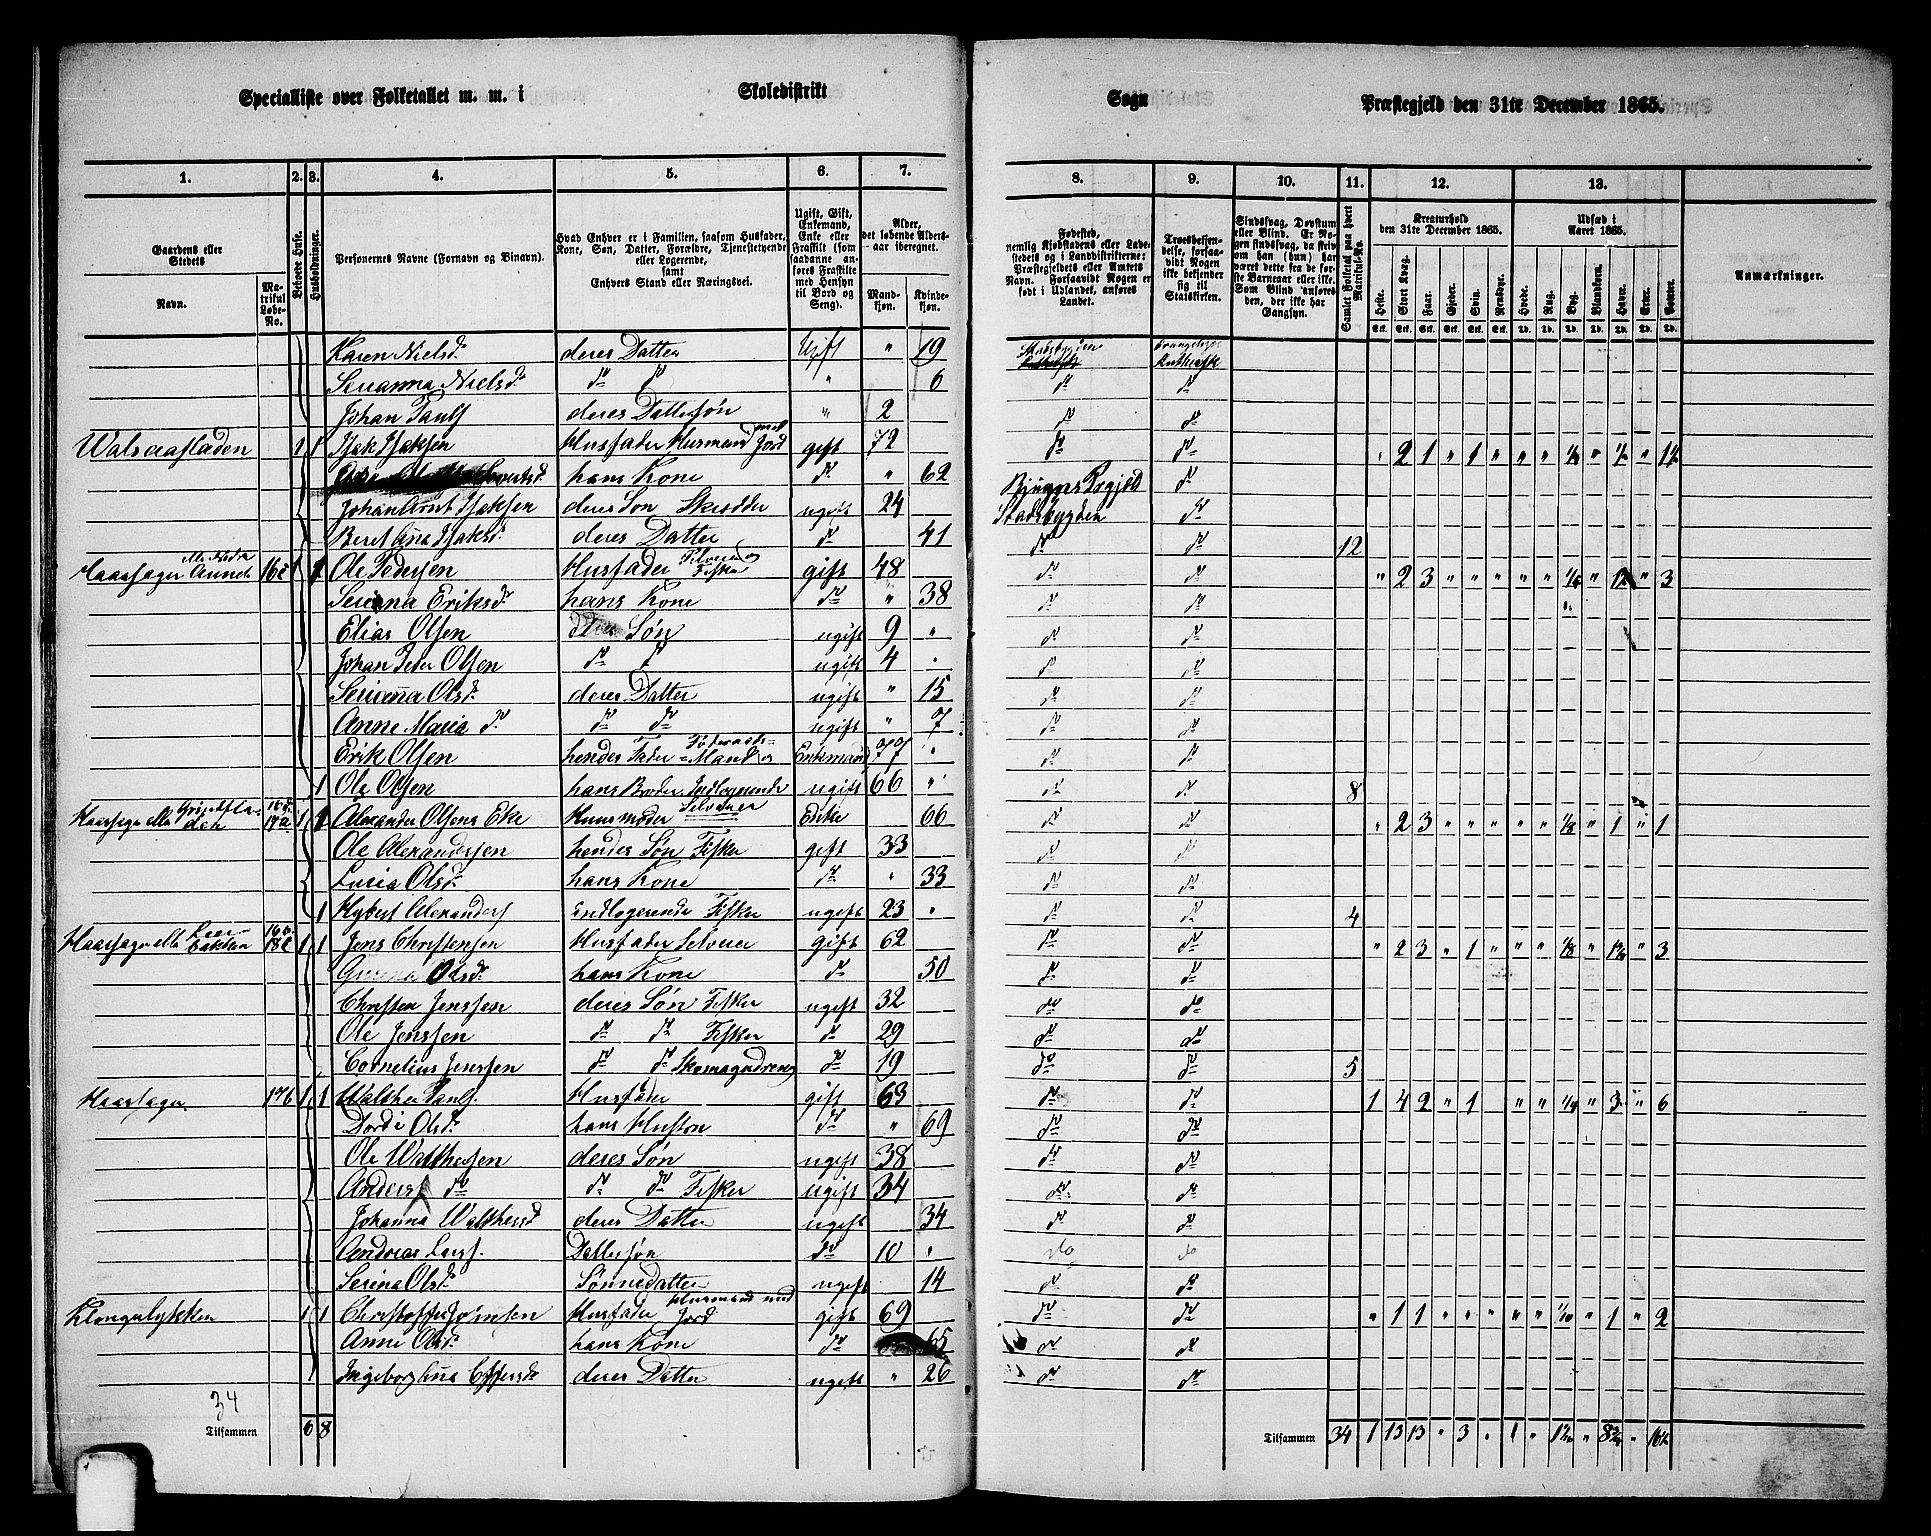 Specialliste over Folketallet m. m. i Skoledistrikt Sogn Præstegjeld den 31te December 1865.
1. 2. 3. 4. 5. 6. 7. 8. 9. 10. 11. 12. 13.
Gaardens eller Stedets
Navn.
Matrikul Løbe-No.
Beboede Huse.
Husholdninger.
Personernes Navne (Fornavn og Binavn).
Hvad Enhver er i Familien, saasom Husfader, Kone, Søn, Datter, Forældre, Tjenestetyende eller Logerende, samt Enhvers Stand eller Næringsvei.
Ugift, Gift, Enkemand, Enke eller Fraskilt (som saadanne anføres Fraskilte med Hensyn til Bord og Seng).
Alder, det løbende Aldersaar iberegnet.
Mandkjøn. Kvindekjøn.
Fødested, nemlig Kjøbstadens eller Ladestedets og i Landdistrikterne: Præstegjeldets eller Amtets Navn. Forsaavidt Nogen er født i Udlandet, anføres Landet.
Troesbekjendelse, forsaavidt Nogen ikke bekjender sig til Statskirken.
Sindssvag, Døvstum eller Blind. Er Nogen sindssvag, da skrives om han (hun) har været dette fra de første Barneaar eller ikke. Som Blind anføres den, der ikke har Gangsyn.
Samlet Folketal paa hvert Matrikul-No.
Kreaturhold den 31te December 1865.
Heste. Stort Kvæg. Faar. Gjeder. Svin. Rensdyr.
Udsæd i Aaret 1865.
Hvede. Rug. Byg. Blandkorn. Havre. Erter. Poteter.
Anmærkninger.
Karen Nielsd. deres Datter Ugift " 19 Stadsbygden Evangelisk Luthersk
Serianna Nielsd. do do " 6 do do
Johan Pauls deres Dattersøn " 2 do do
Walsaasladen 1 1 Isak Isaksen Husfader Husmand med Jord gift 72 do do " 2 1 " 1 " " "
hans Kone do " 62 Bjugns Prgjeld do
Johan Arnt Isaksen deres Søn Skrædder ugift 24 Stadsbygden do
Beret Ana Isaksd. deres Datter do 41 do do 12
1 1 Ole Pedersen Husfader Selveier og Fisker gift 48 do do " 2 3 " " " " " " 3
Seriana Eriksd. hans Kone do " 38 do do
Elias Olsen Søn ugift 9 " do do
Johan Peter Olsen do do ugift 4 " do do
Serianna Olsd. deres Datter ugift " 15 do do
Anne Maria do do do ugift " 7 do do
Erik Olsen hendes Fader Føderaads-Mand og Enkemand 77 " do do
1 Ole Olsen hans Broder Inderst ugift 66 " do do 8
1 1 Alexander Olsens Eke Huusmoder Selveier Enke 66 do do " 2 3 " " " " " 1/8 " 1 " 1
Ole Alexandersen hendes Søn Fisker gift 33 do do
Lucia Olsd. hans Kone do " 33 do do
1 Hybert Alexanders Indlogerende Fisker ugift 23 " do do 4
1 1 Jens Christensen Husfader Selveier gift 62 do do " 2 3 " 1 " " " 1/8 " " 3
Olsd. hans Kone do 50 do do
Christen Jenssen deres Søn Fisker ugift 32 do do
Ole Jenssen do do Fisker do 29 do do
Cornelius Jenssen do do Skomagerdreng do 19 do do 5
Haarsager 17b 1 1 Walther Pauls. Husfader gift 63 do do 1 4 2 " 1 " " 1/4 " 3 " 6
Dordi Olsd. hans Huston do " 69 do do
Ole Walthersen deres Søn ugift 38 do do
Anders do do do Fisker ugift 34 do do
Johanna Walthersd deres Datter ugift 34 do do
Andreas Lars. Dattersøn do 10 " do do
Serina Olsd. Sønnedatter ugift 14 do do
Klongulykken 1 1 Husfader Husmand med Jord gift 69 do do " 1 1 " " " " " 1/10 " 1 " 2
Anne Olsd. hans Kone do 65 do do
Ingeborg Ana deres Datter ugift " 26 do do
34
Tilsammen 6 8
Tilsammen 34 1 13 13 " 3 "